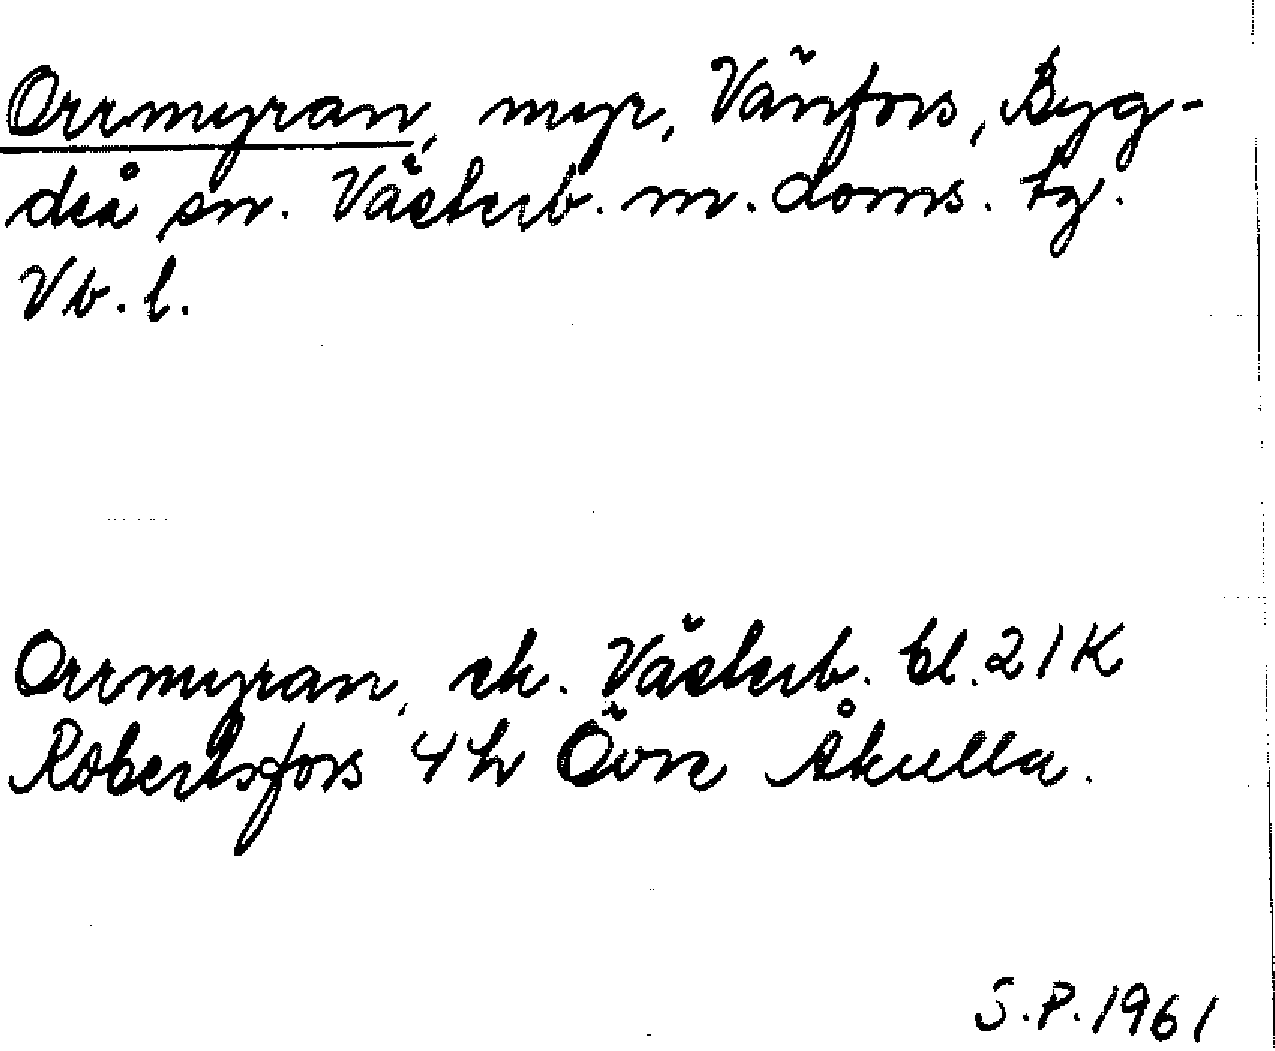 Orrmyran, myr, Vänfors, Byg-
deå sn. Västerb. m. doms. tg.
Vb. l.
Orrmyran, ek. Västerb. bl. 21K
Robertsfors 4h Övre Åkulla.
S.P. 1961